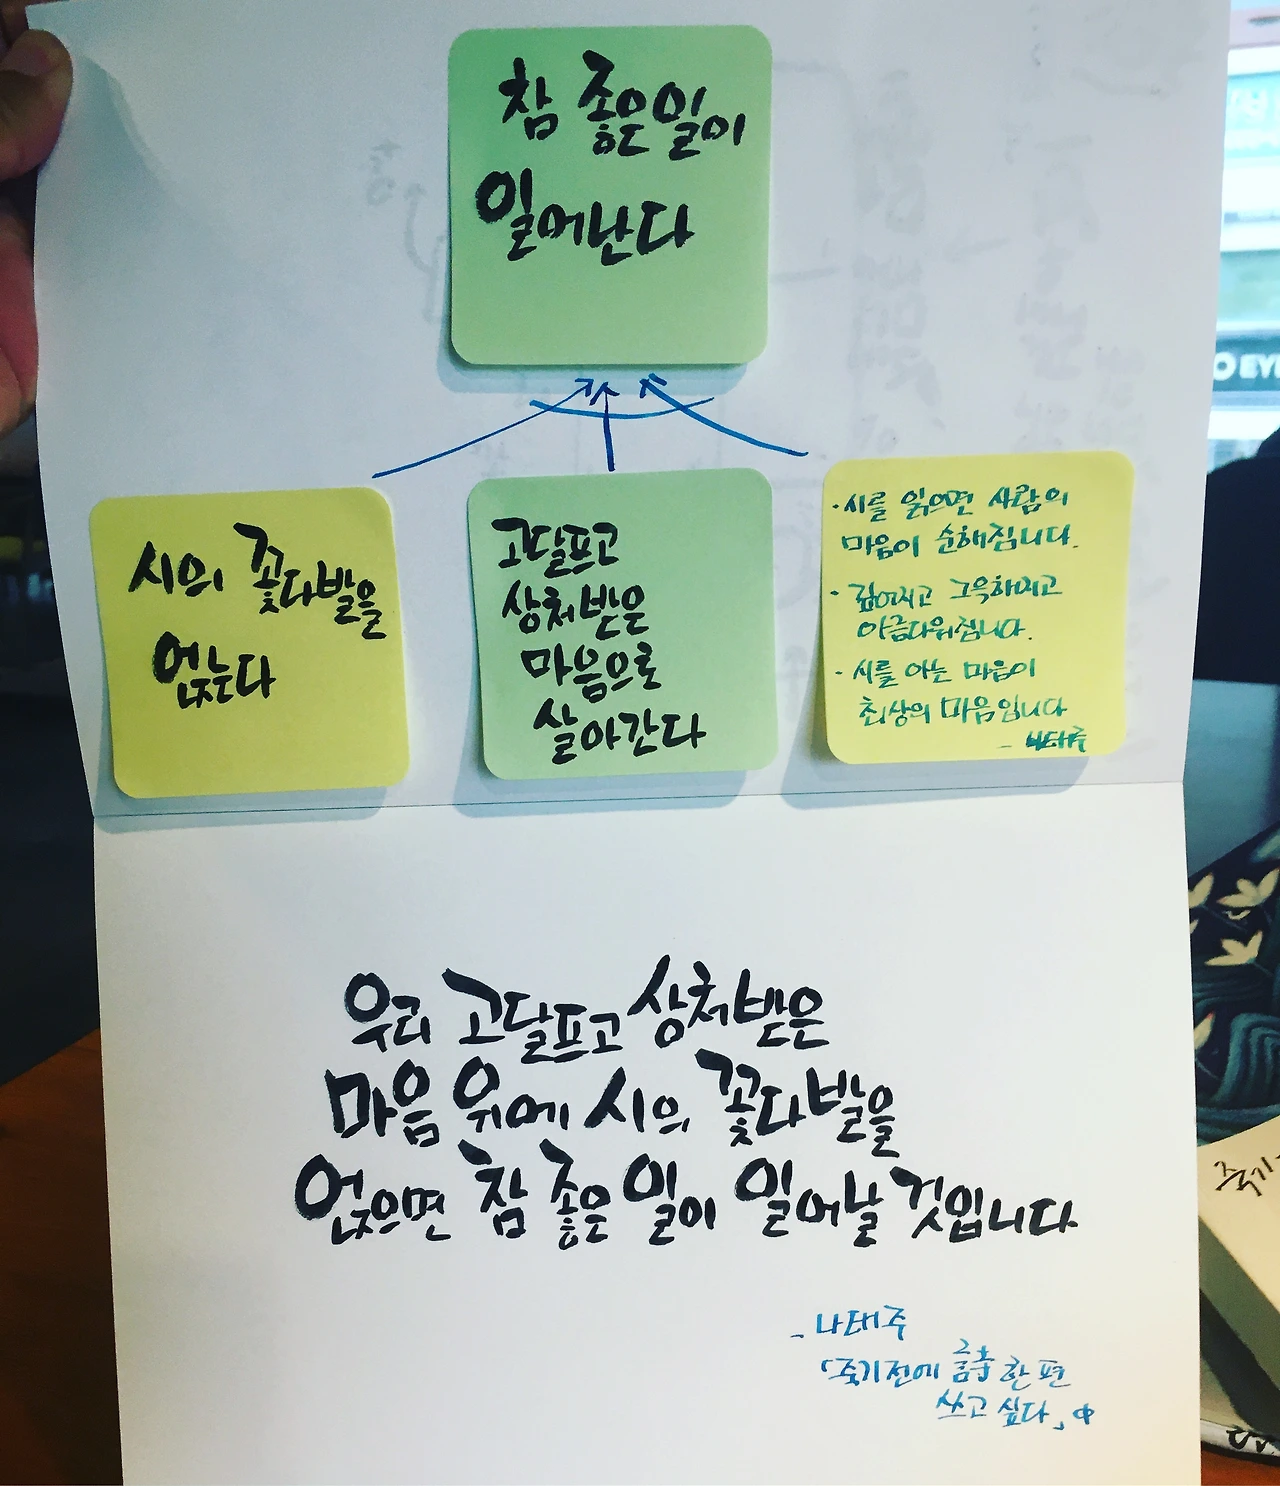 참 좋은 일이
일어난다
시의 꽃다발을
얹는다
고달프고
상처받은
마음으로
살아간다
· 시를 읽으면 사람의
마음이 순해집니다.
· 깊어지고 그윽하여지고
아름다워집니다.
· 시를 아는 마음이
최상의 마음입니다
- 나태주
우리 고달프고 상처받은
마음 위에 시의 꽃다발을
얹으면 참 좋은 일이 일어날 것입니다
- 나태주
「죽기전에 詩 한 편
쓰고 싶다」 中
O EYE
죽기